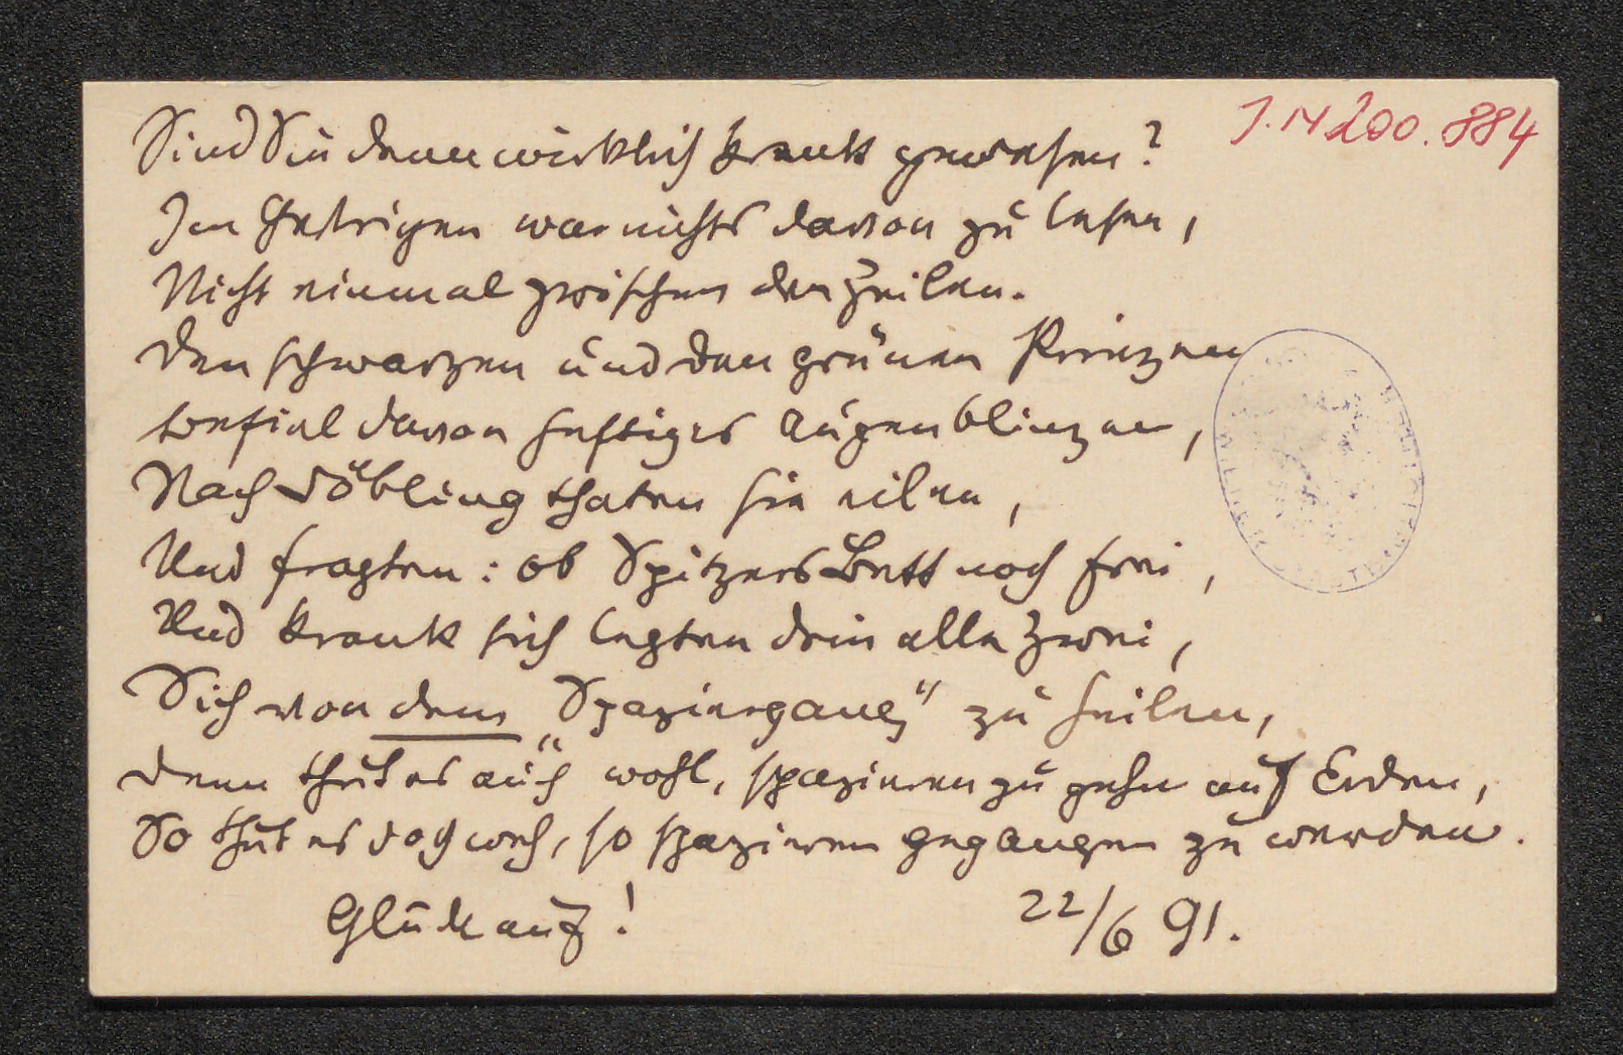 J. N 200.884
Sind Sie denn wirklich krank gewesen?
Im Gestrigen war nichts davon zu lesen,
Nicht einmal zwischen den Zeilen.
Den schwarzen und den grünen Prinzen
befiel davon heftiges Augenblinzen,
Nach Döbling thaten sie eilen,
Und fragten: ob Spitzers Bett noch frei,
Und krank sich legten drin alle zwei,
Sich von dem „Spaziergang“ zu heilen,
Denn thut es auch wohl, spazieren zu gehn auf Erden,
So thut es doch weh, so spazieren gegangen zu werden.
Glück auf!
22/6 91.